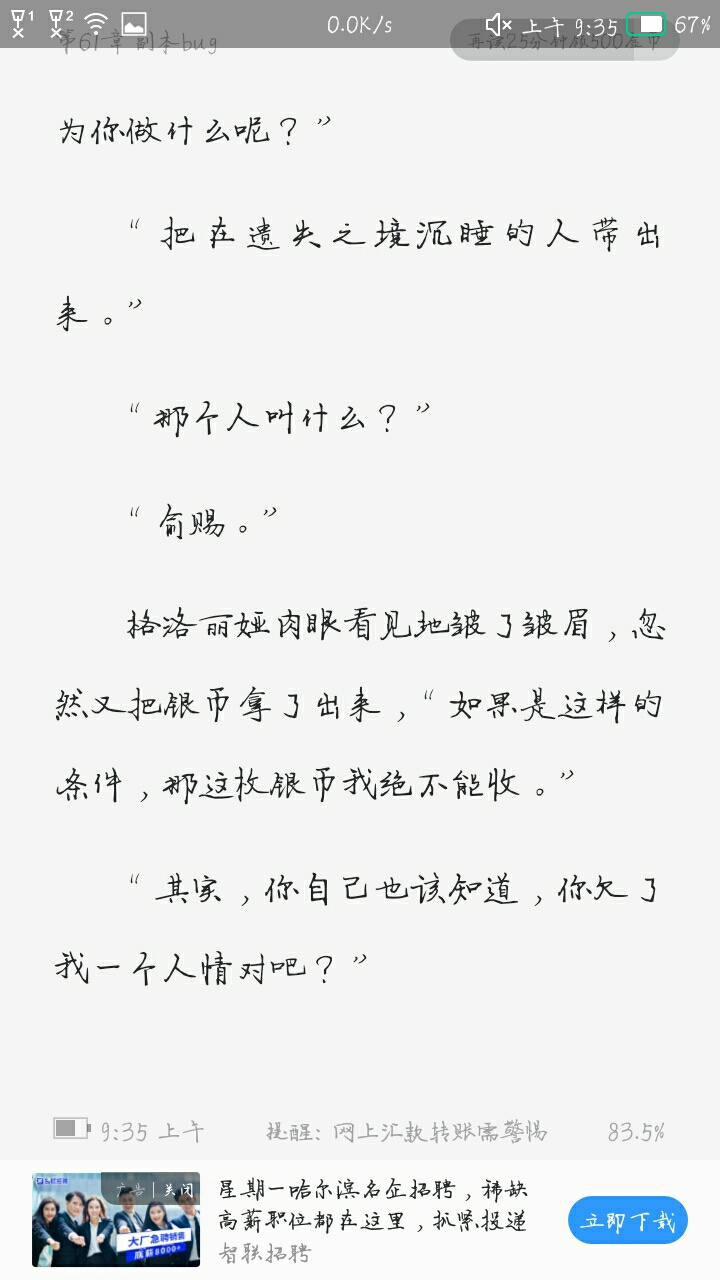 0.0K/s 上午 9:35 67%
第61章 副本bug 再读25分钟领500金币
为你做什么呢？”
“把在遗失之境沉睡的人带出
来。”
“那个人叫什么？”
“俞赐。”
格洛丽娅肉眼看见地皱了皱眉，忽
然又把银币拿了出来，“如果是这样的
条件，那这枚银币我绝不能收。”
“其实，你自己也该知道，你欠了
我一个人情对吧？”
9:35 上午 提醒：网上汇款转账需警惕 83.5%
广告 | 关闭
大厂急聘销售
底薪8000+
星期一哈尔滨名企招聘，稀缺
高薪职位都在这里，抓紧投递
智联招聘
立即下载